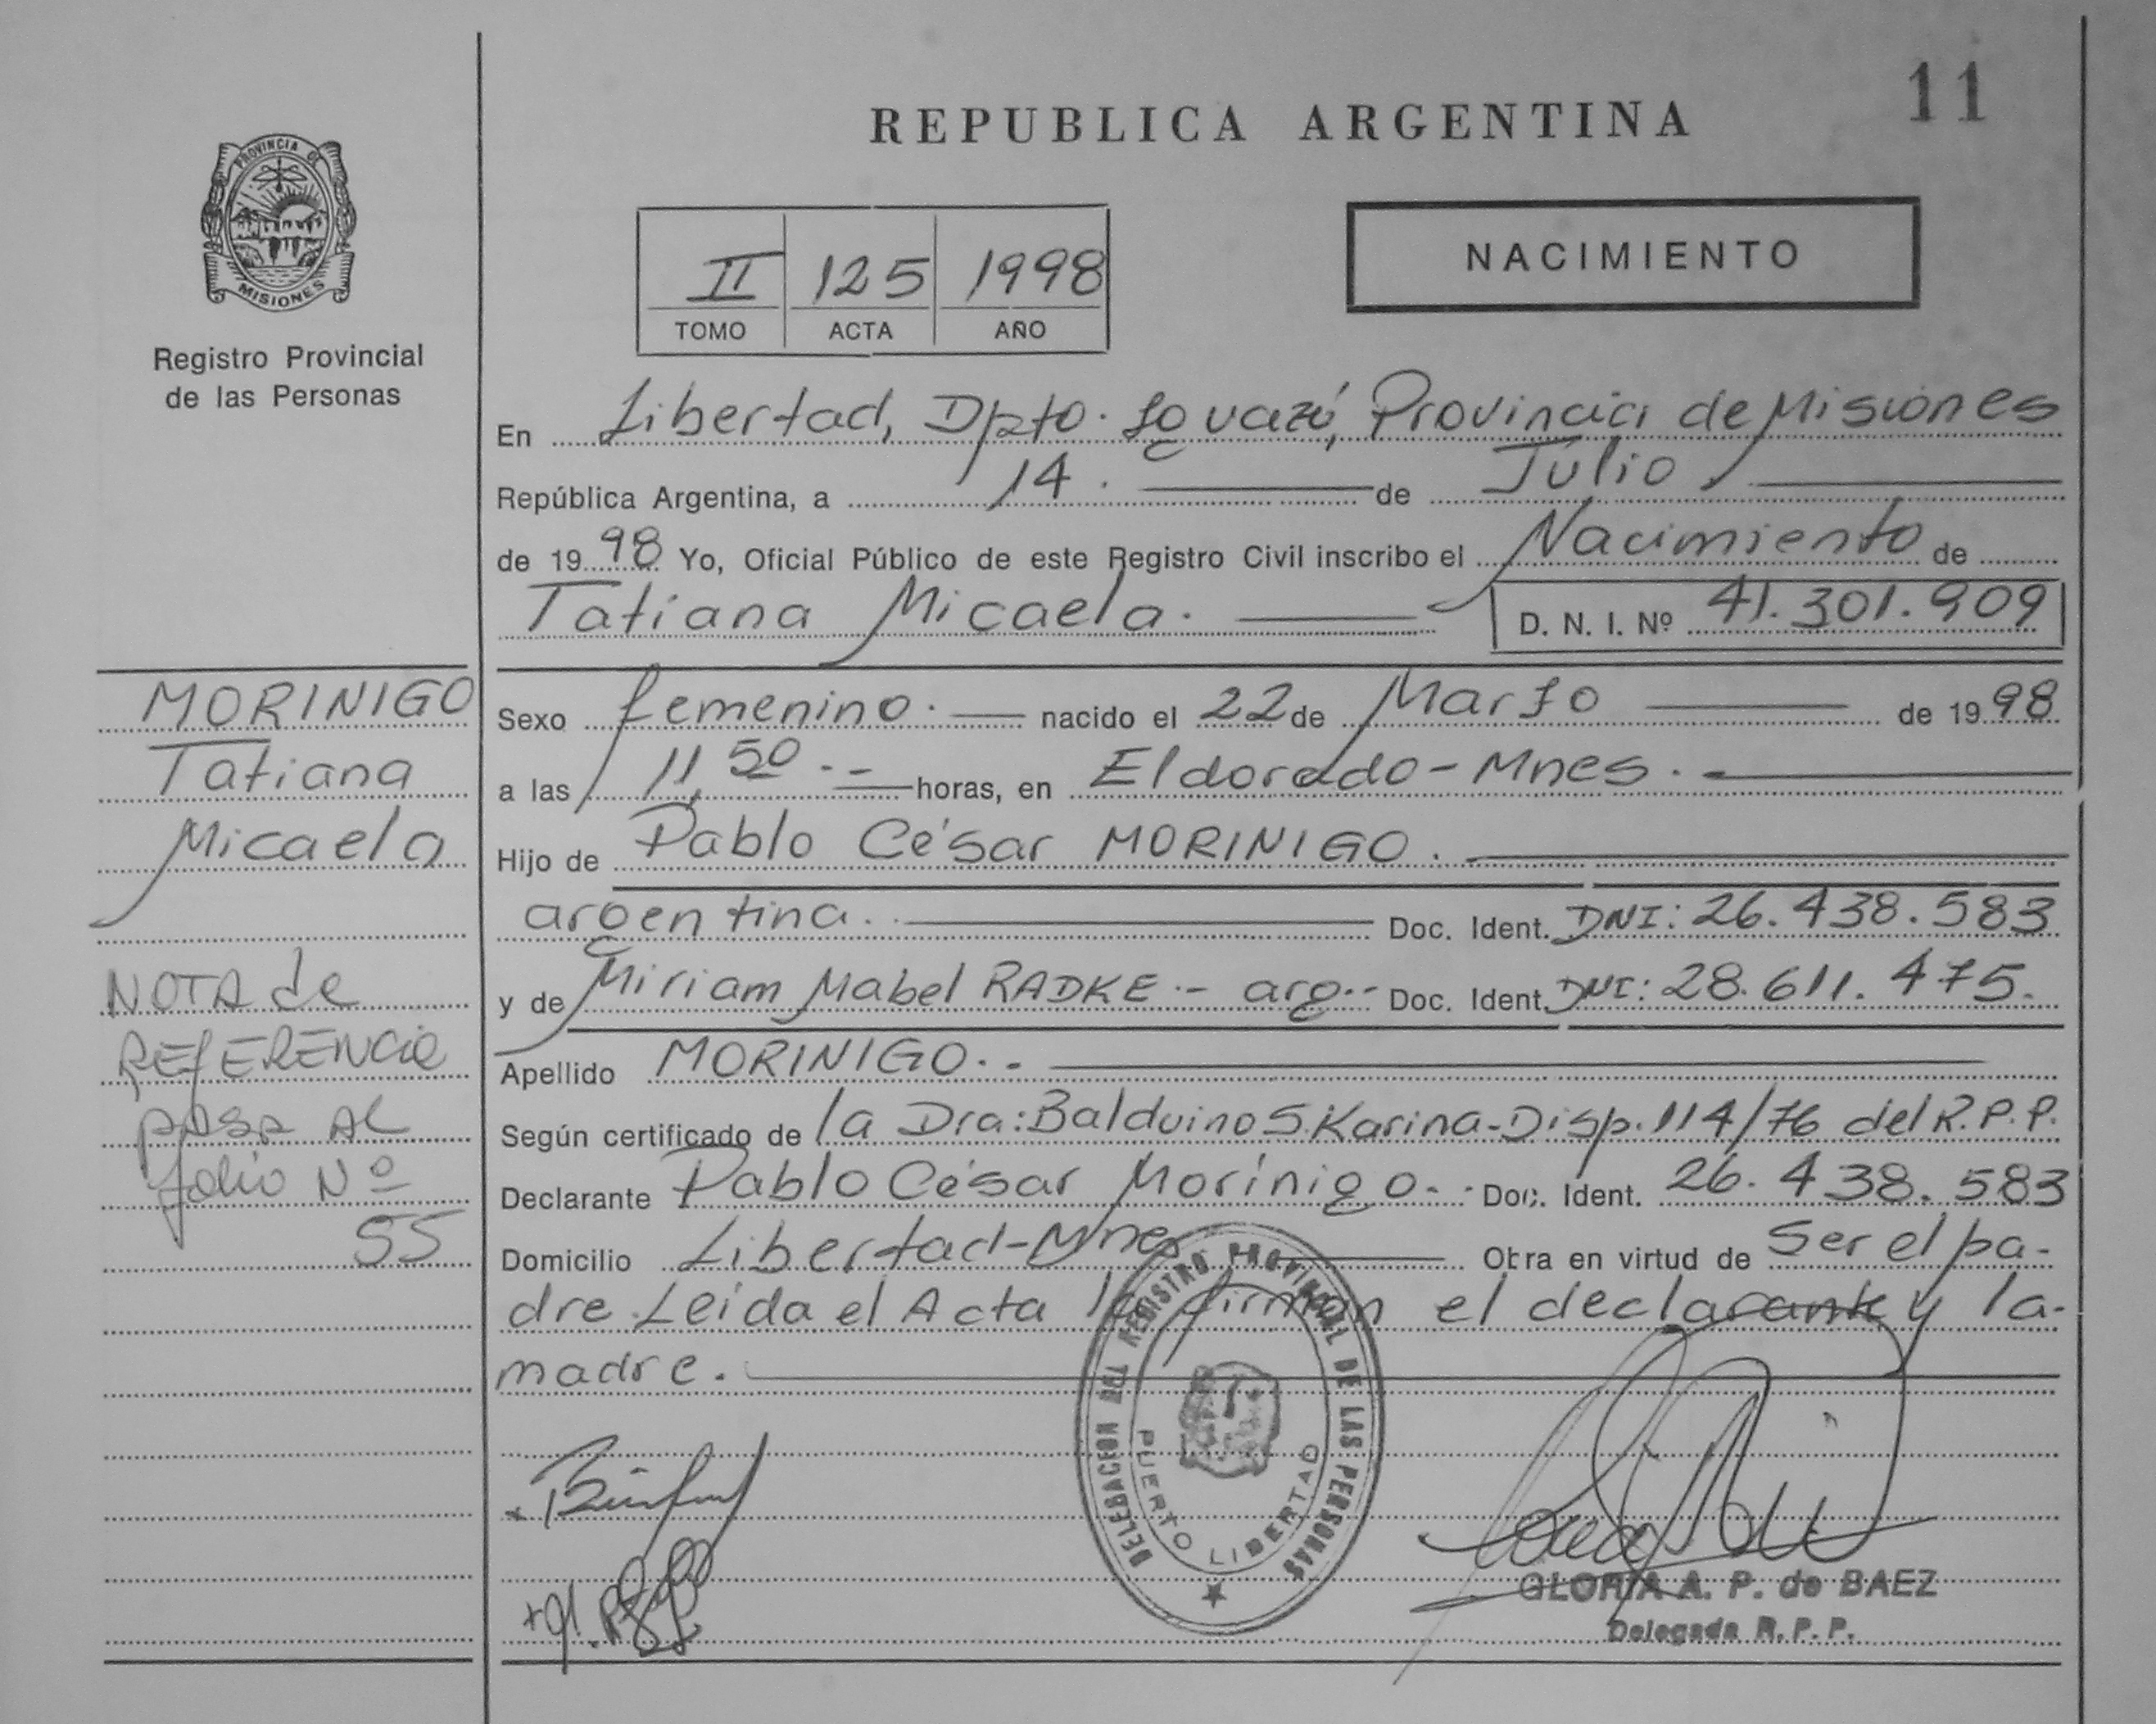 11
REPUBLICA ARGENTINA
PROVINCIA DE
MISIONES
Registro Provincial
de las Personas
II 125 1998
TOMO ACTA AÑO
NACIMIENTO
En Libertad, Dpto. Iguazú, Provincia de Misiones
República Argentina, a 14. de Julio
de 1998 Yo, Oficial Público de este Registro Civil inscribo el Nacimiento de
Tatiana Micaela. D. N. I. Nº 41.301.909
MORINIGO
Tatiana
Micaela
Sexo femenino. nacido el 22 de Marzo de 1998
a las 11,50.- horas, en Eldorado-Mnes.
Hijo de Pablo César MORINIGO.
argentina. Doc. Ident. DNI: 26.438.583
y de Miriam Mabel RADKE.- arg.- Doc. Ident. DNI: 28.611.475.
Apellido MORINIGO.-
Según certificado de la Dra: Balduino S. Karina-Disp. 114/76 del R.P.P.
Declarante Pablo César Morínigo.- Doc. Ident. 26.438.583
Domicilio Libertad-Mnes Obra en virtud de Ser el pa-
dre. Leída el Acta la firman el declarante y la
madre.
NOTA de
REFERENCIA
pasa AL
folio Nº
55
DELEGACION DEL REGISTRO PROVINCIAL DE LAS PERSONAS
PUERTO LIBERTAD
GLORIA A. P. de BAEZ
Delegada R. P. P.